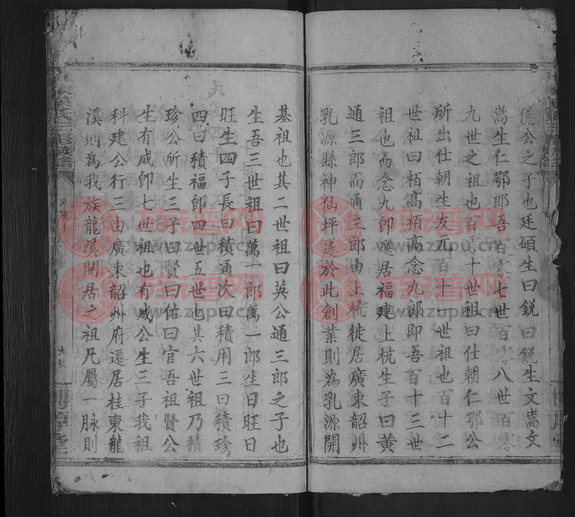 僖公之子也廷碩生曰銳曰銳生文嵩文
嵩生仁鄂郎吾百零七世百零八世百零
九世之祖也百一十世祖曰仕朝仁鄂公
所出仕朝生友九百十一世祖也百十二
世祖曰栢高栢高念九郎即吾百十三世
祖也而念九郎遷居福建上杭生子曰黄
通三郎而通三郎由上杭徙居廣東韶州
乳源縣神仙坪遂於此創業則為乳源開
基祖也其二世祖曰英公通三郎之子也
生吾三世祖曰萬一郎萬一郎生曰旺曰
旺生四子長曰積通次曰積用三曰積珍
四曰積福即四世五世也其六世祖乃積
珍公所生三子曰賢曰佑曰官吾祖賢公
生有威即七世祖也有威公生三子我祖
科建公行三由廣東韶州府遷居桂東龍
溪則為我族龍溪開居之祖凡屬一脉則